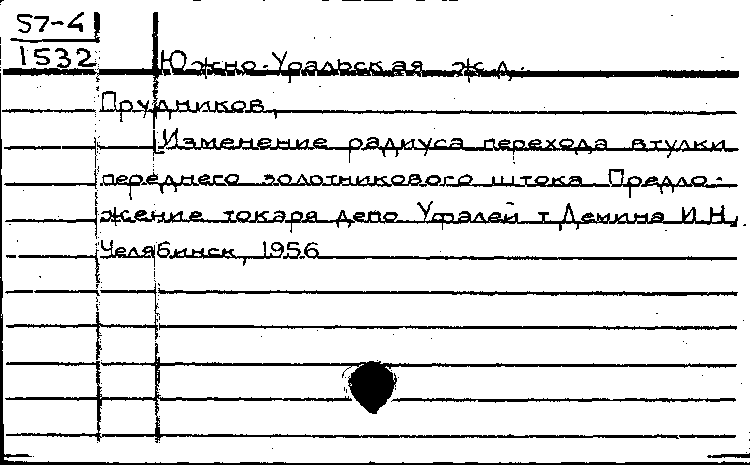 57-4
1532
Южно-Уральская ж.д.
Прудников,
Изменение радиуса перехода втулки
переднего золотникового штока Предло-
жение токаря депо Уфалей т Демина И.Н.
Челябинск, 1956